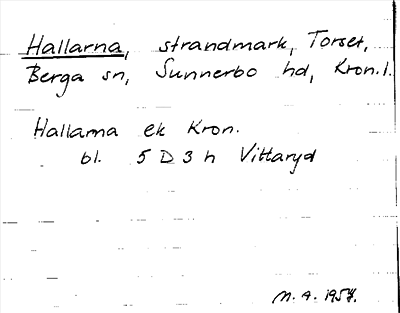 Hallarna, strandmark, Torset,
Berga sn, Sunnerbo hd, Kron.l.
Hallarna ek Kron.
bl. 5 D 3 h Vittaryd
M. A. 1957.